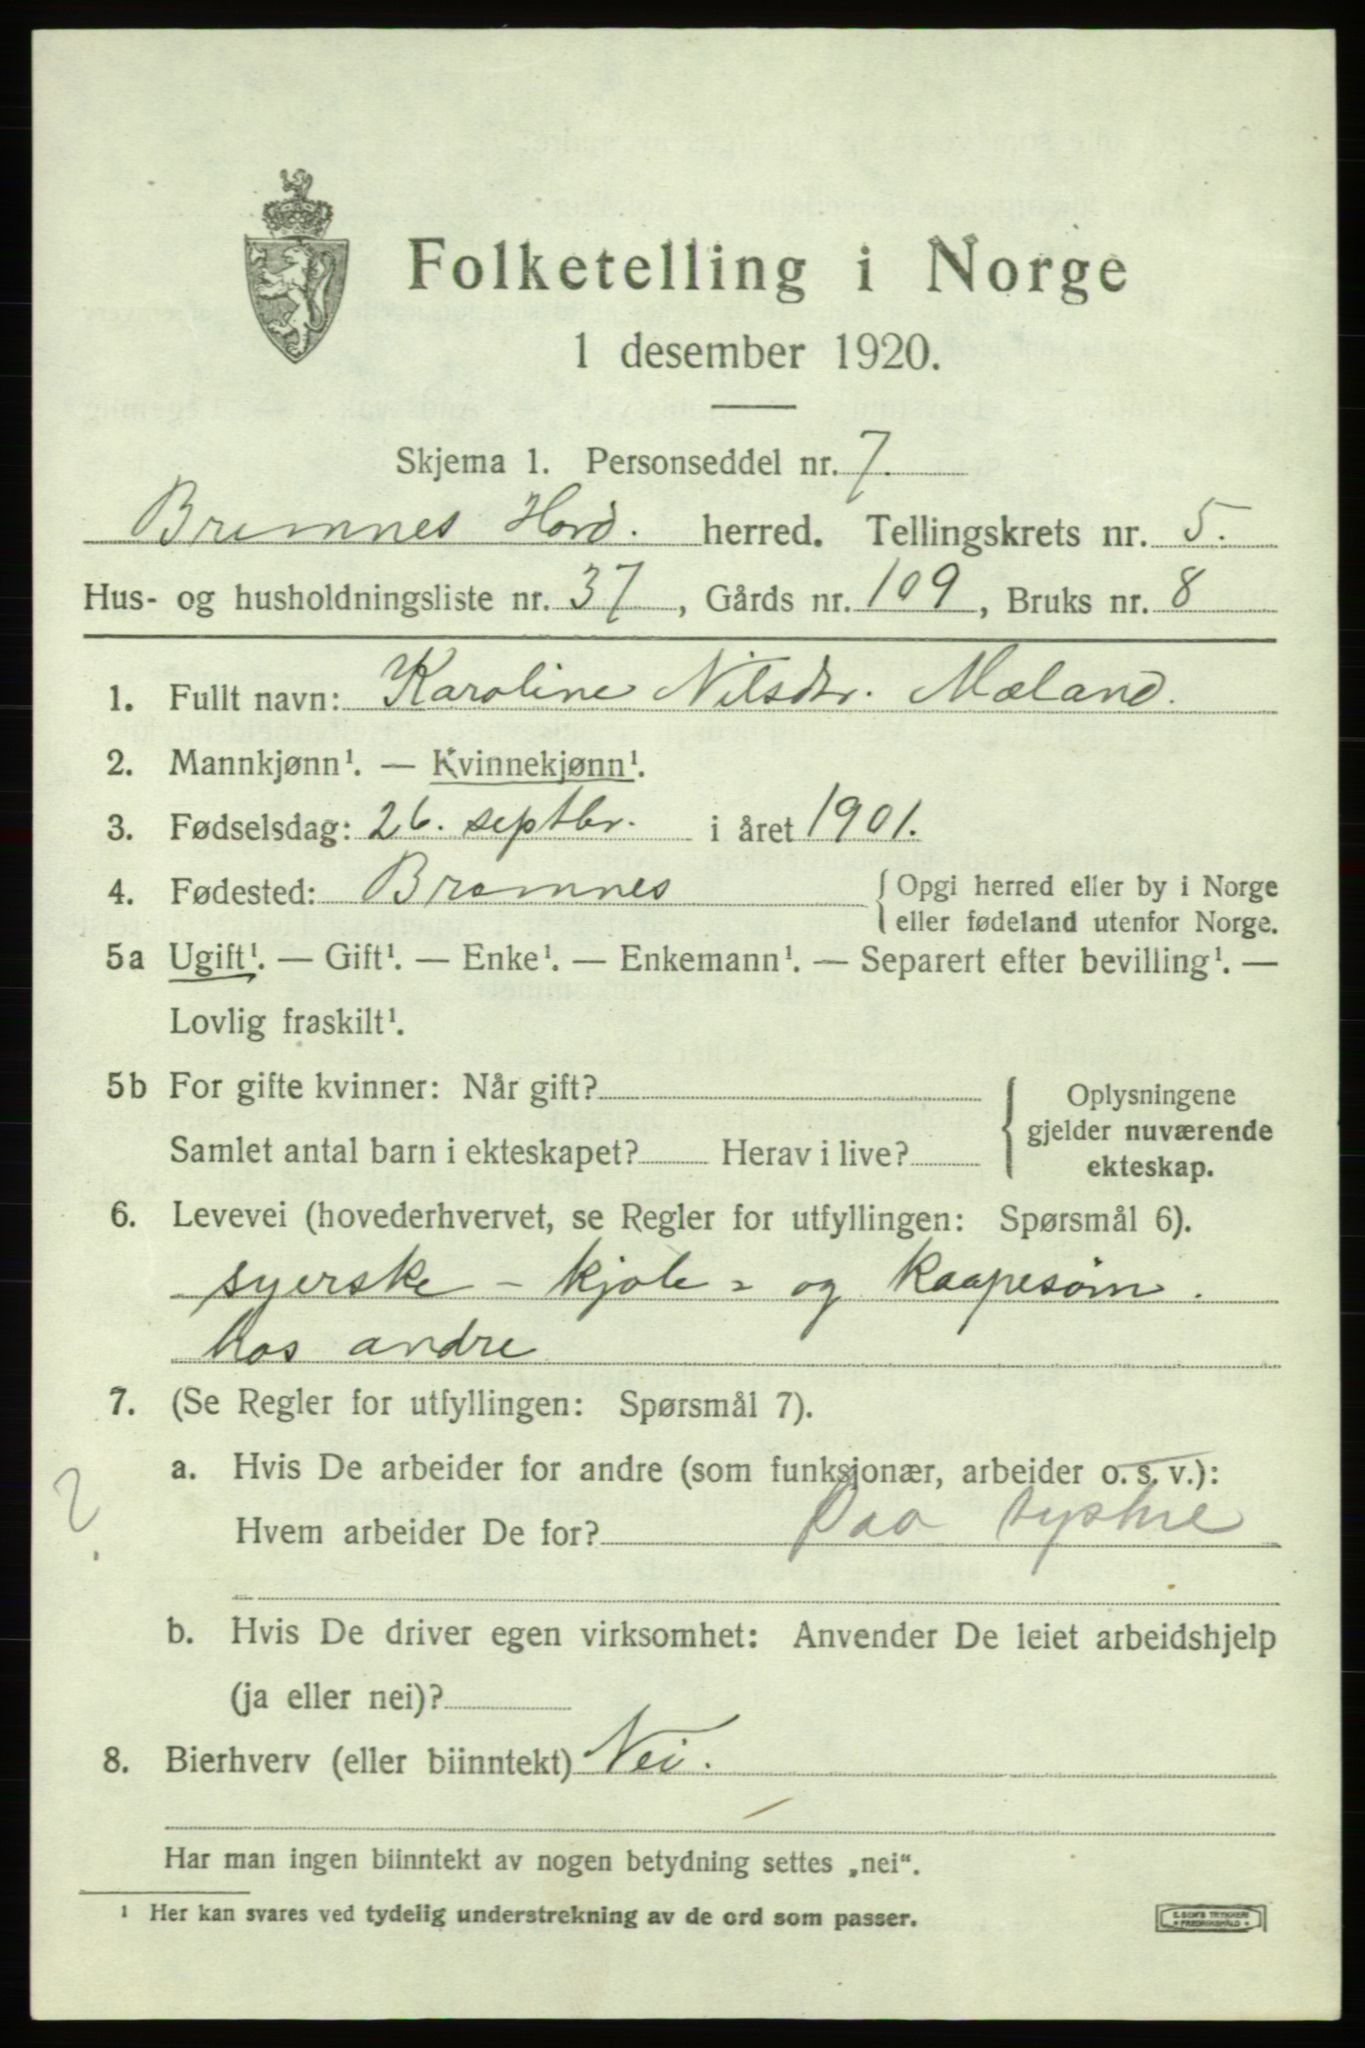 Folketelling i Norge
1 desember 1920.
Skjema 1. Personseddel nr. 7.
Bremnes Hord. herred. Tellingskrets nr. 5.
Hus- og husholdningsliste nr. 37, Gårds nr. 109, Bruks nr. 8
1. Fullt navn: Karoline Nilsdtr. Mæland.
2. Mannkjønn¹. — Kvinnekjønn¹.
3. Fødselsdag: 26. septbr. i året 1901.
4. Fødested: Bremnes { Opgi herred eller by i Norge
eller fødeland utenfor Norge.
5a Ugift¹. — Gift¹. — Enke¹. — Enkemann¹. — Separert efter bevilling¹. —
Lovlig fraskilt¹.
5b For gifte kvinner: Når gift?
Samlet antal barn i ekteskapet? Herav i live?
Oplysningene
gjelder nuværende
ekteskap.
6. Levevei (hovederhvervet, se Regler for utfyllingen: Spørsmål 6).
syerske - kjole- og kaapesøm.
hos andre
7. (Se Regler for utfyllingen: Spørsmål 7).
a. Hvis De arbeider for andre (som funksjonær, arbeider o. s. v.):
?
Hvem arbeider De for? Paa systue
b. Hvis De driver egen virksomhet: Anvender De leiet arbeidshjelp
(ja eller nei)?
8. Bierhverv (eller biinntekt) Nei.
Har man ingen biinntekt av nogen betydning settes „nei“.
¹ Her kan svares ved tydelig understrekning av de ord som passer.